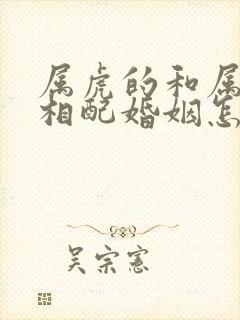 属虎的和属
相配婚姻怎
吴宗宪